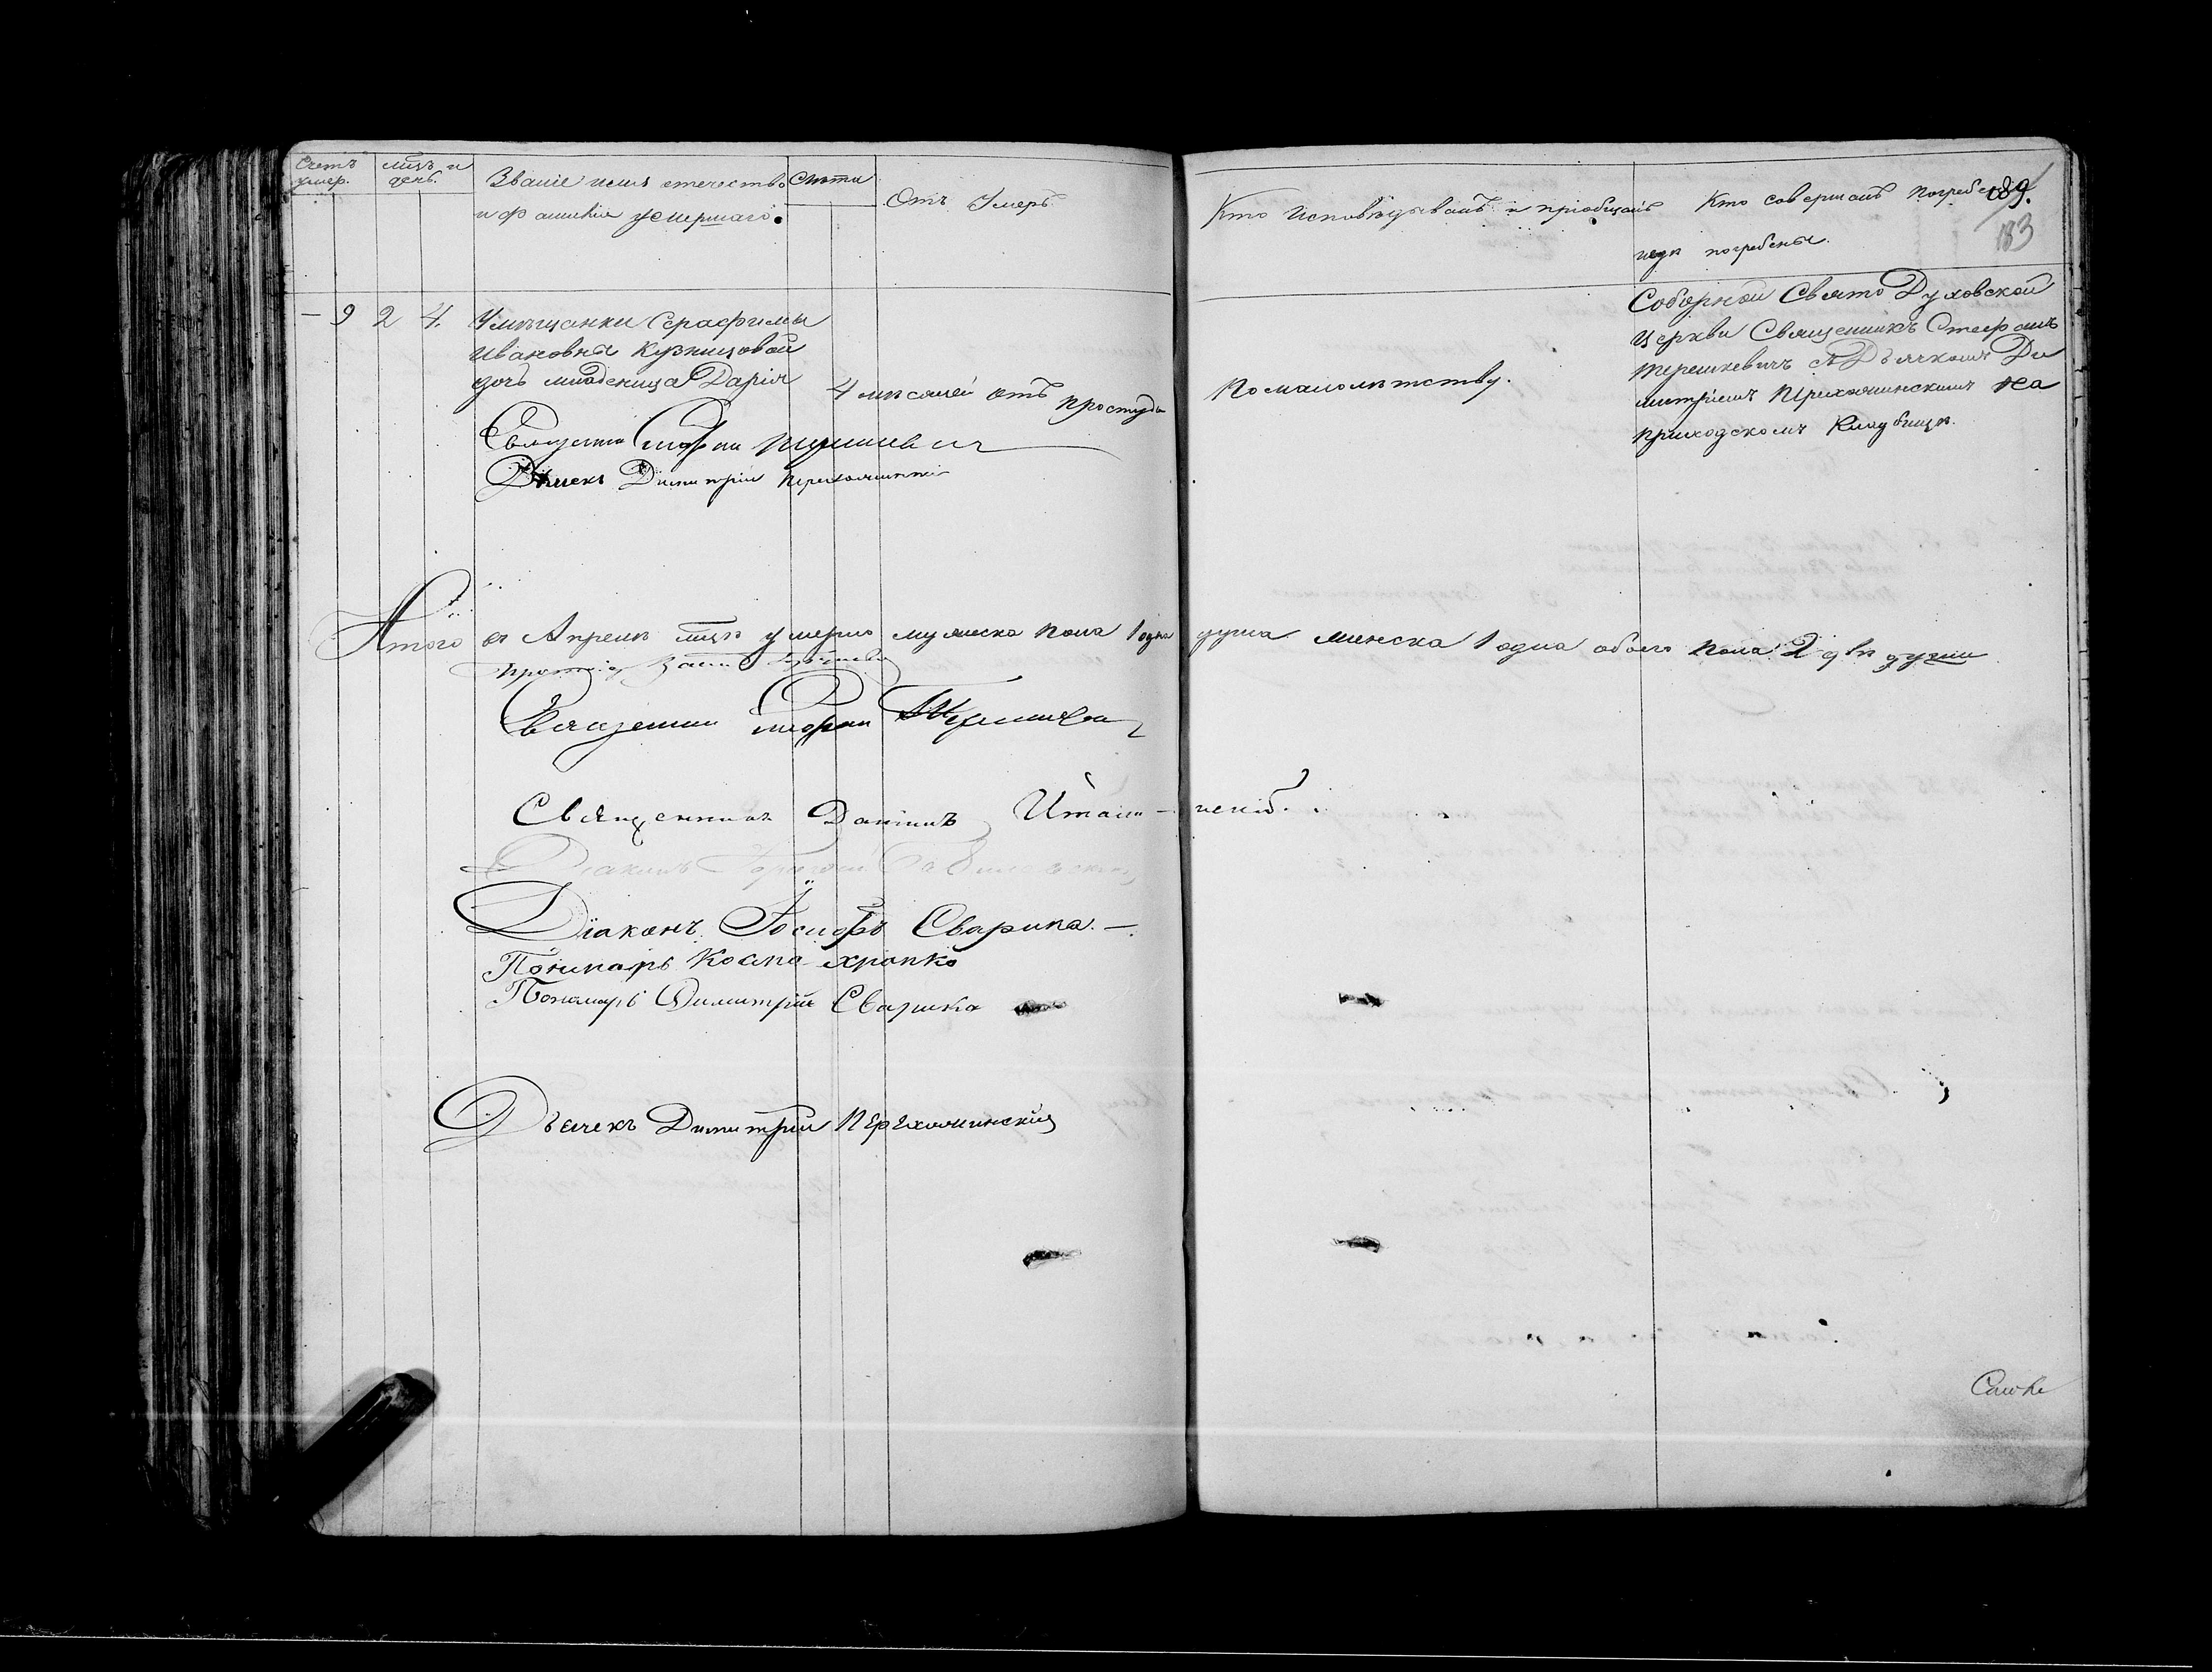 Счетъ умер.
мцъ и день.
Званіе имя отечество
и фамилія умершаго.
Слѣта
Отъ умеръ
Кто исповѣдывалъ и пріобщалъ
Кто совершалъ погребе
гдѣ погребены.
189.
183
— 9 2 4. У мѣщанки Серафимы
Ивановны Кузнецовой
дочь младенца Дарія
4 мѣсяцей отъ простуды
По малолѣтству.
Соборной Свято Духовской
Церкви Священникъ Стефанъ
Терешкевичъ съ Дьячкомъ Ди
митріемъ Перехоминскимъ на
приходскомъ Кладбищѣ.
Священни Стефан Терешкевич
Дьячекъ Димитрій Перехомински
Итого въ Апрелѣ мцѣ умерло мужеска пола 1 одна душа женска 1 одна обоего пола 2 двѣ души
Священни Стефан Терешкеви
Священникъ Даніилъ
Діаконъ
Діаконъ Іосифъ Сварика. —
Пономарь Косма Храпко
Пономарь Димитрій Сварика
Дьячекъ Димитрій Перехоминскій